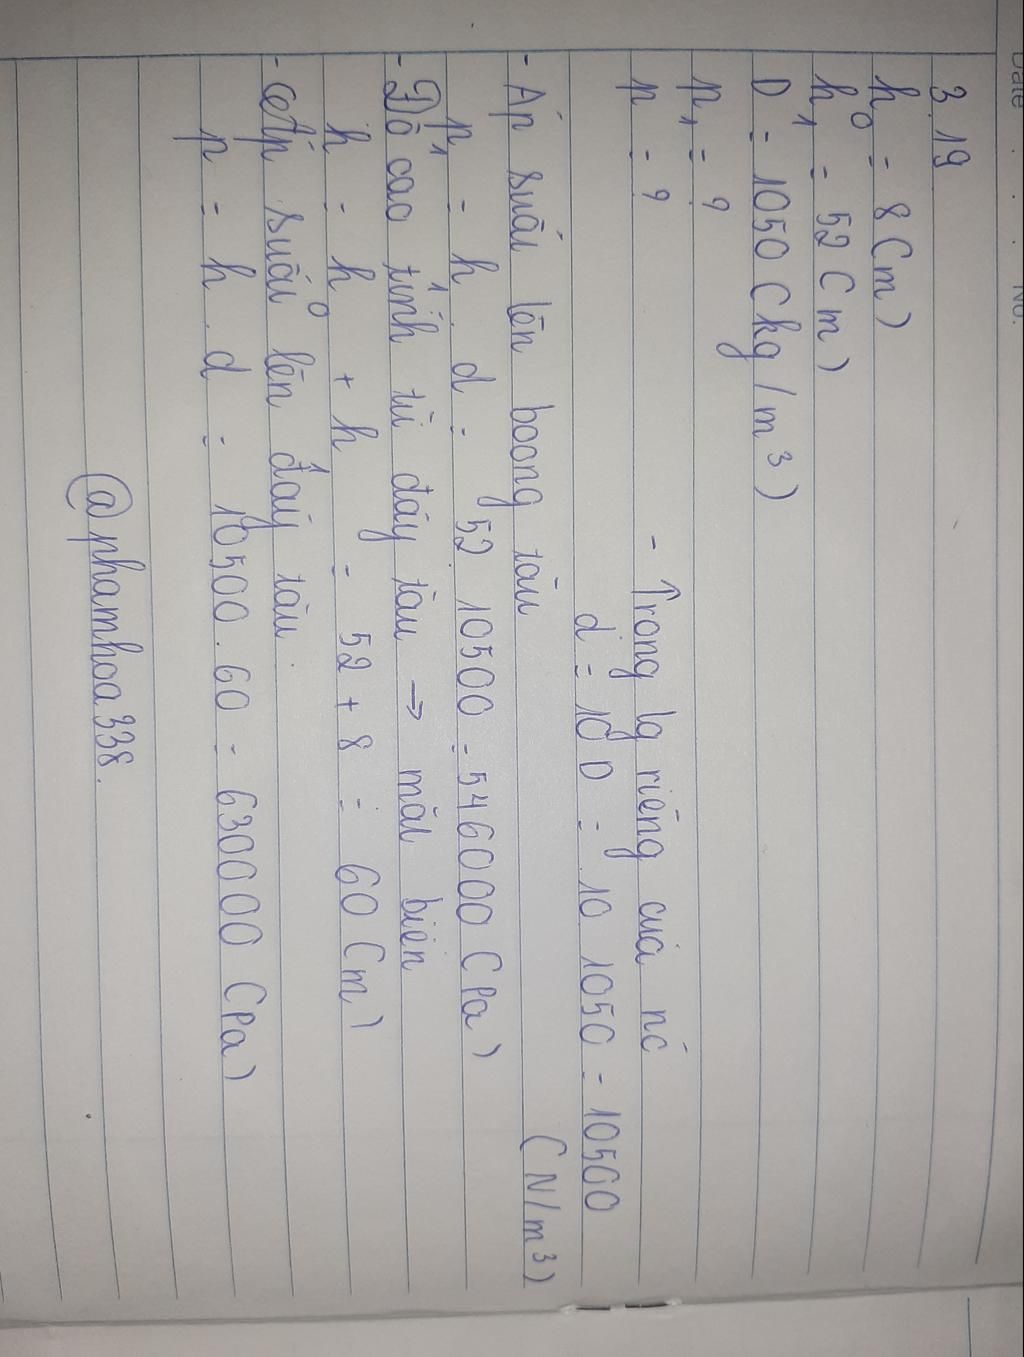 Date . . . No.
3.19
h₀ = 8 (m)
h₁ = 52 (m)
D = 1050 (kg/m³)
p₁ = ?
p = ?
- Trọng lg riêng của nc
d = 10 D = 10. 1050 = 10500
(N/m³)
- Áp suất lên boong tàu
p₁ = h₁ . d = 52. 10500 = 546000 (Pa)
- Độ cao tính từ đáy tàu → mặt biển
h = h₀ + h₁ = 52 + 8 = 60 (m)
- Áp suất lên đáy tàu
p = h . d = 10500. 60 = 630000 (Pa)
@phamhoa338.